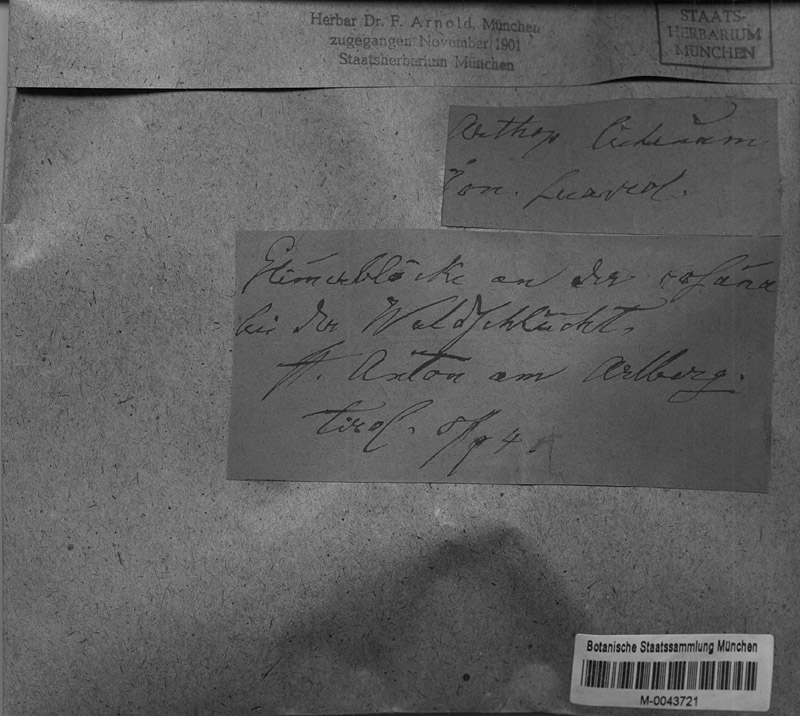 Herbar Dr. F. Arnold, München
zugegangen November 1901
Staatsherbarium München
STAATS-
HERBARIUM
MÜNCHEN
Arthop
Glimerblöcke an der rosana
bei der Waldschlucht.
St. Anton am Arlberg.
Tirol. 8/94.
Botanische Staatssammlung München
M-0043721